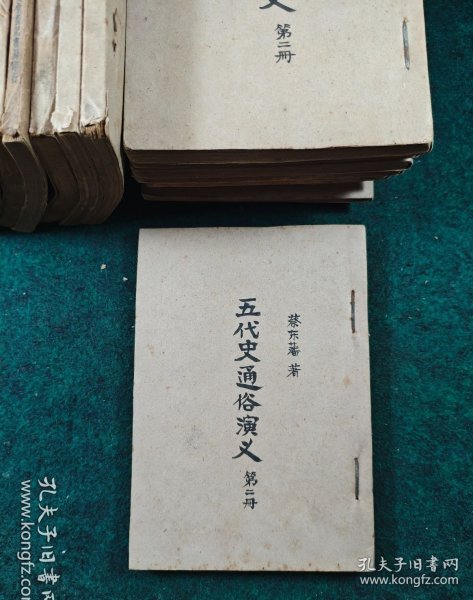 义
第二册
蔡东藩 著
五代史通俗演义
第二册
孔夫子旧书网
孔夫子旧书网
www.kongfz.com